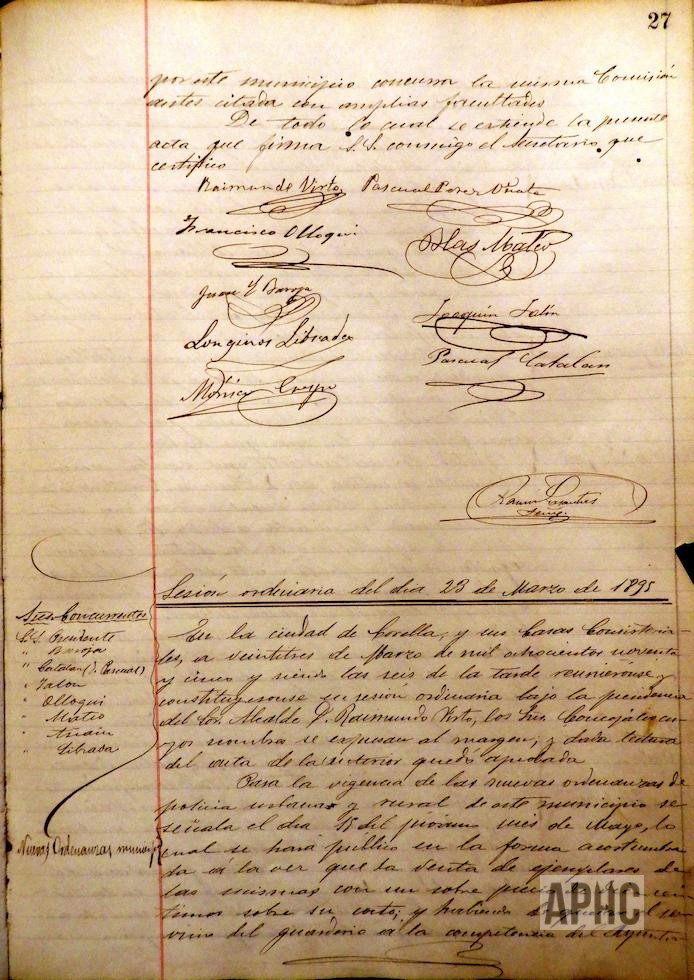 27
por este municipio concurra la misma Comisión
antes citada con amplias facultades
De todo lo cual se extiende la presente
acta que firma S.S. conmigo el Secretario que
certifico
Raimundo Virto Pascual Perez Oñate
Francisco Olloqui Blas Mateo
Juan Y Baroja Joaquin Jalón
Longinos Librada Pascual Catalan
Mónico Crespo
Ramon
Sesión ordinaria del dia 23 de Marzo de 1895
Sres. Concurrentes
S.S. Presidente
" Baroja
" Catalan (D. Pascual)
" Jalon
" Olloqui
" Mateo
"
" Librada
En la ciudad de Corella, y sus Casas Consistoria-
les, a veintitres de Marzo de mil ochocientos noventa
y cinco y siendo las seis de la tarde reunieronse y
constituyeronse en sesión ordinaria bajo la presidencia
del Sor. Alcalde D. Raimundo Virto, los Sres. Concejales cu-
yos nombres se expresan al margen; y dada lectura
del acta de la anterior quedó aprobada
Nuevas Ordenanzas municip.
Para la vigencia de las nuevas ordenanzas de
policia urbana y rural de este municipio se
señala el dia 15 del próximo mes de Mayo, lo
cual se hará publico en la forma acostumbra
da á la vez que la venta de ejemplares de
las mismas con un sobre precio de cen
timos sobre su costo; y habiendo el ser
vicio del guarderio a la competencia del Ayunta-
APHC